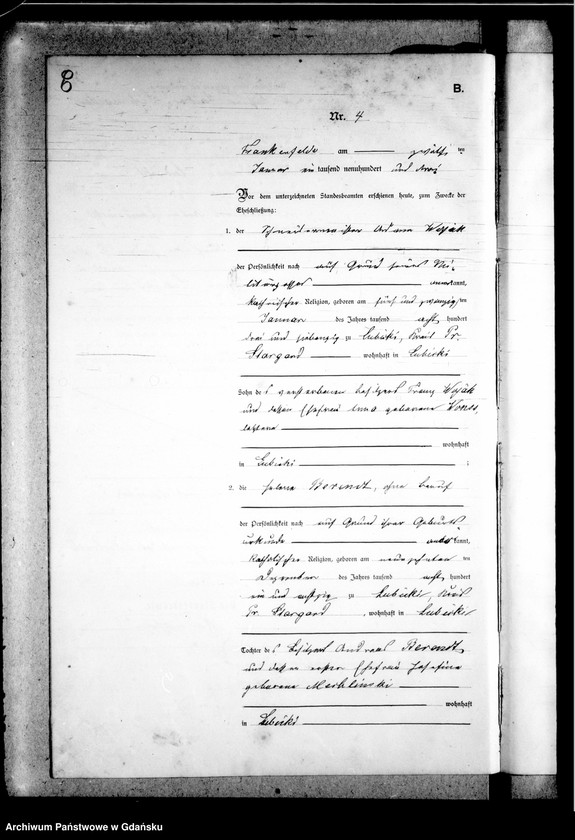 B.
Nr. 4
Frankenfelde am zwölften
Januar ein tausend neunhundert und drei
Vor dem unterzeichneten Standesbeamten erschienen heute, zum Zwecke der
Eheschließung:
1. der Schneidermeister Adam
der Persönlichkeit nach auf Grund seines Mi-
litärpasses kannt,
katholischer Religion, geboren am fünf und zwanzigsten
Januar des Jahres tausend acht hundert
drei und siebenzig zu Lubicki, Kreis Pr.
Stargard wohnhaft in Lubicki
Sohn des verstorbenen Besitzers Franz
und dessen Ehefrau geborene
letztere
wohnhaft
in Lubicki ;
2. die Helene Berendt, ohne Beruf
der Persönlichkeit nach auf Grund ihrer Geburts-
urkunde kannt,
katholischer Religion, geboren am neunzehnten
Dezember des Jahres tausend acht hundert
ein und achtzig zu Lubicki, Kreis
Pr. Stargard , wohnhaft in Lubicki
Tochter des Besitzers Andreas Berendt
und dessen erster Ehefrau Josefine
geborene Mechlinski
wohnhaft
in Lubicki
Archiwum Państwowe w Gdańsku